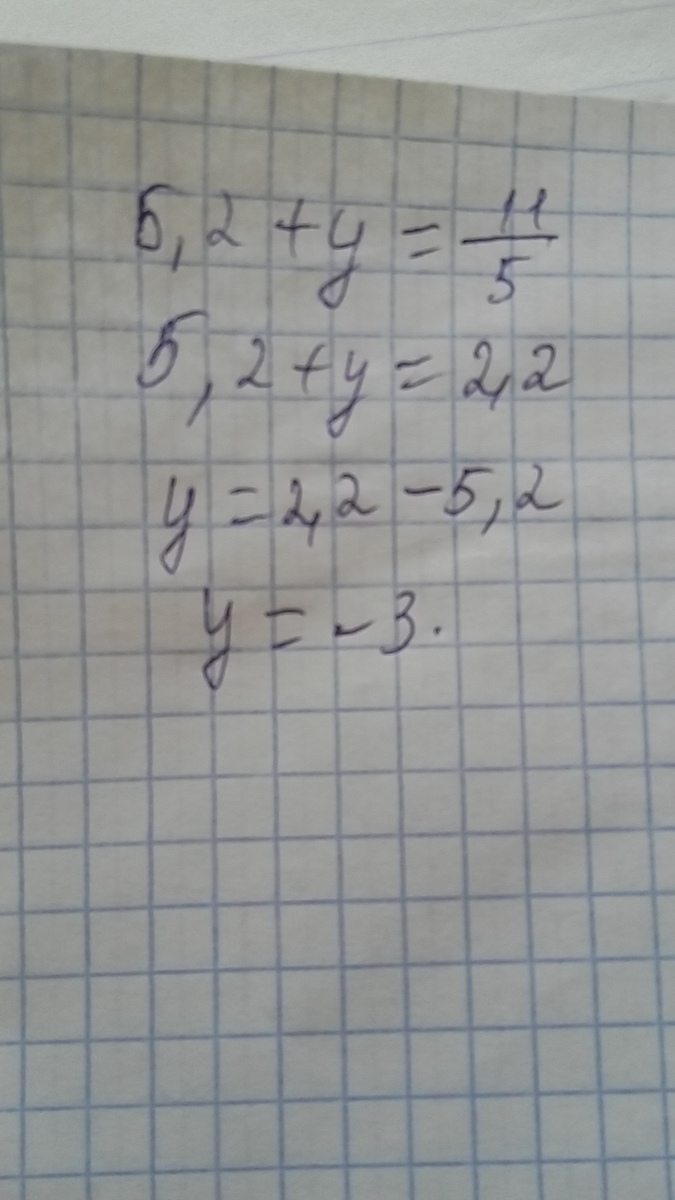 5,2 + y = 11/5
5,2 + y = 2,2
y = 2,2 - 5,2
y = - 3.